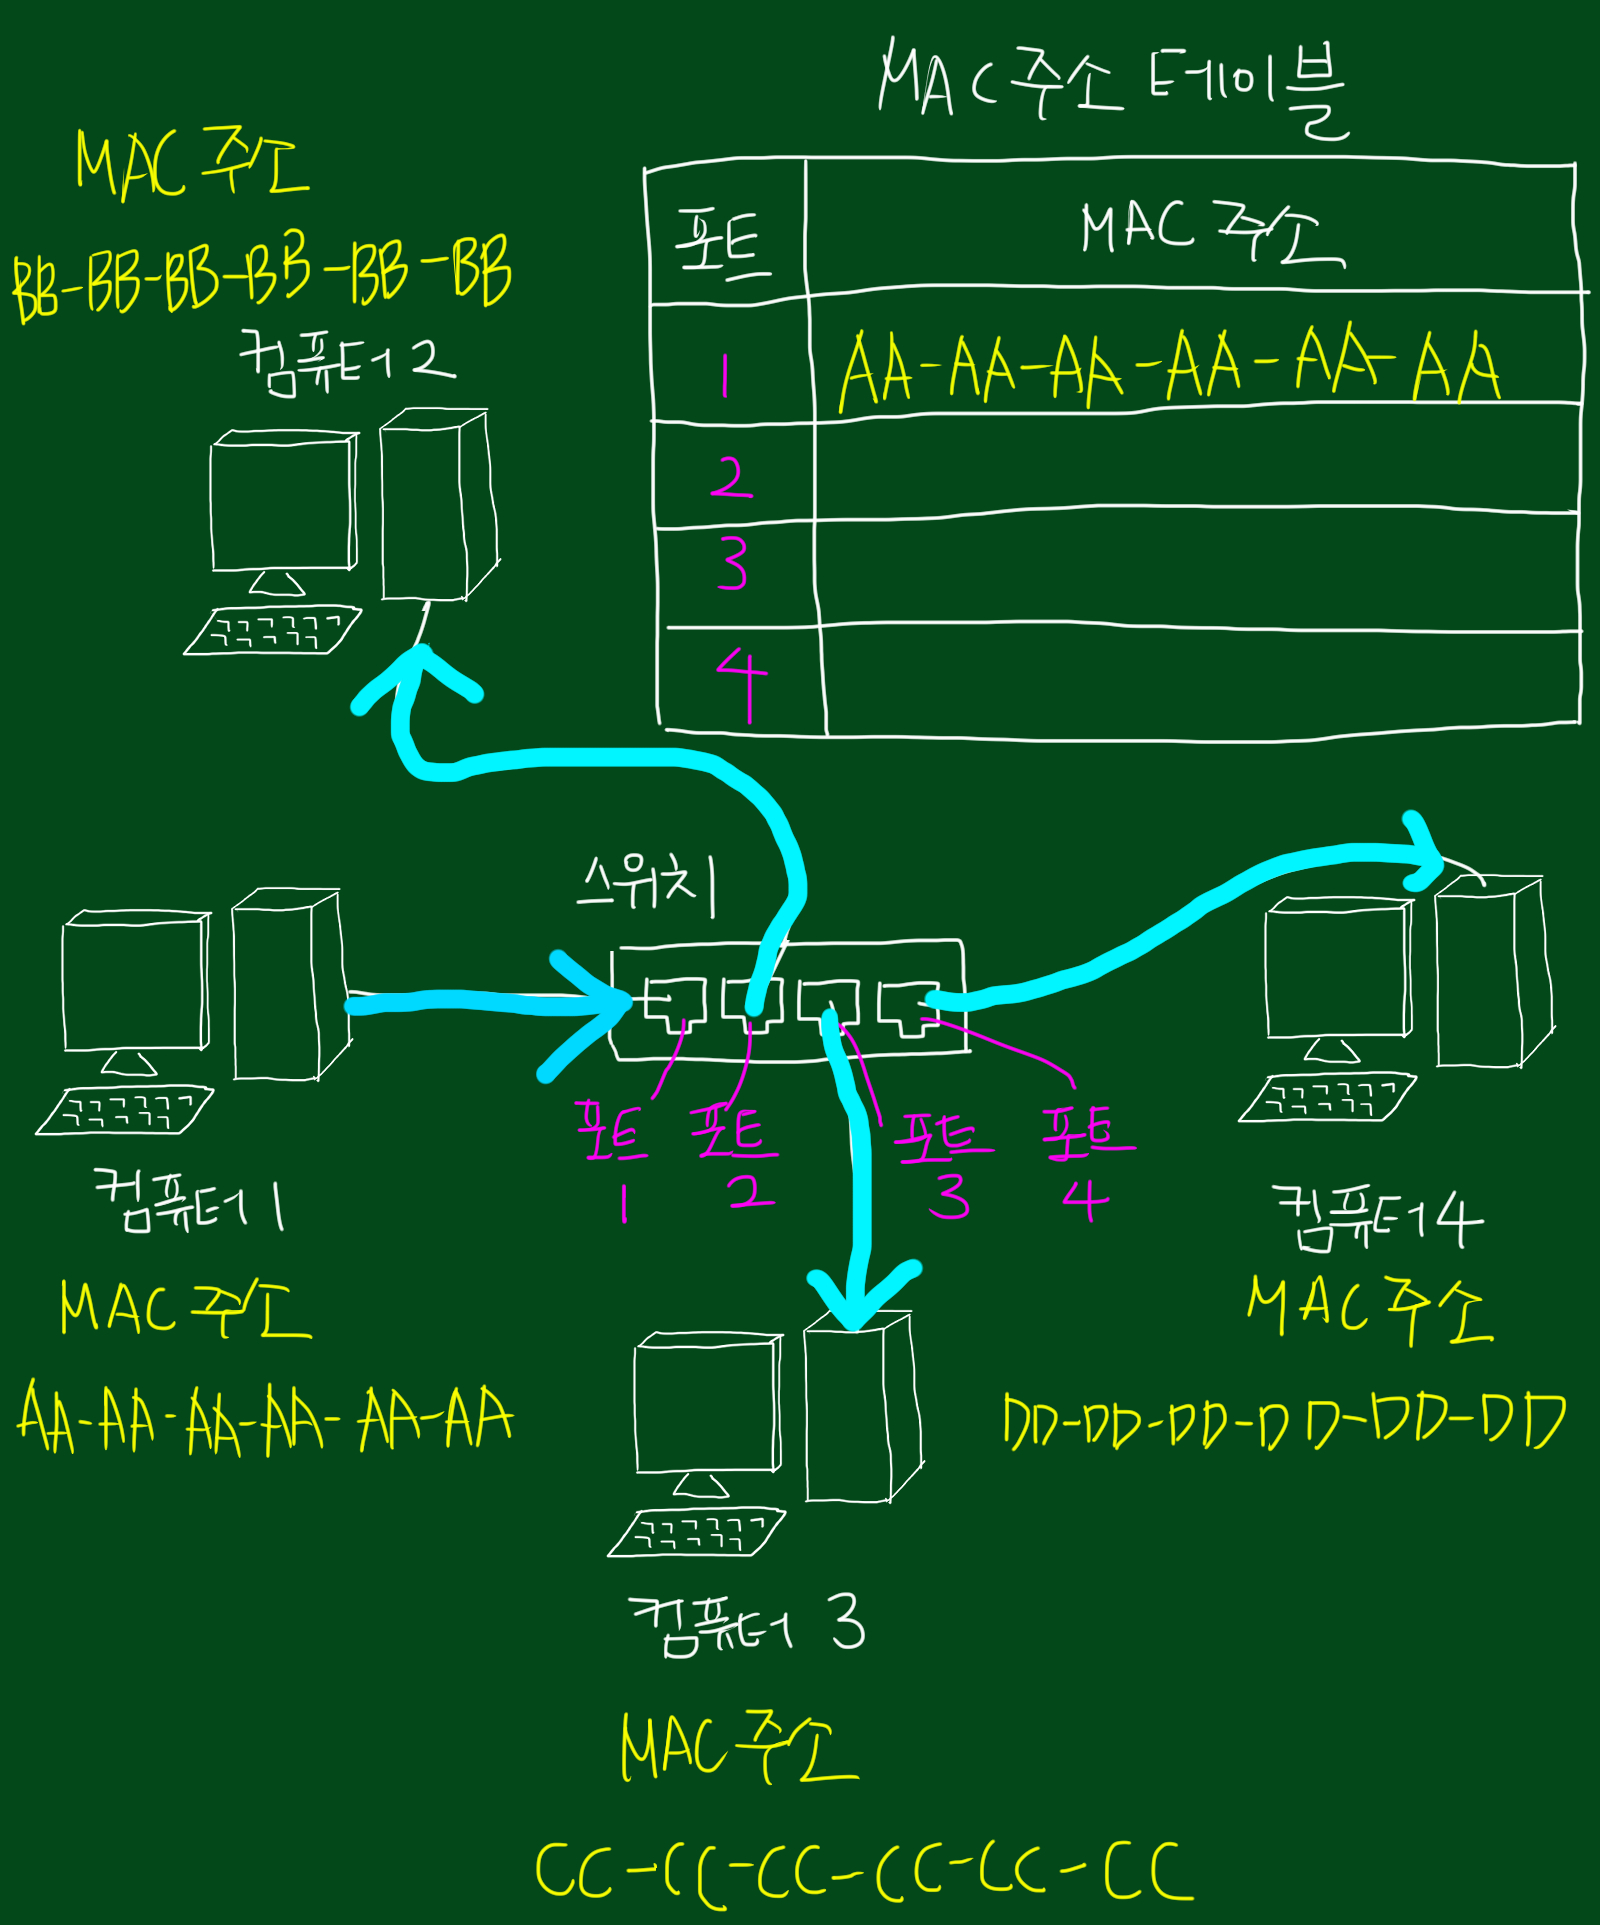 MAC주소 테이블
포트 MAC 주소
1 AA-AA-AA-AA-AA-AA
2
3
4
MAC 주소
BB-BB-BB-BB-BB-BB
컴퓨터2
스위치
포트 1
포트 2
포트 3
포트 4
컴퓨터1
MAC 주소
AA-AA-AA-AA-AA-AA
컴퓨터4
MAC 주소
DD-DD-DD-DD-DD-DD
컴퓨터 3
MAC 주소
CC-CC-CC-CC-CC-CC